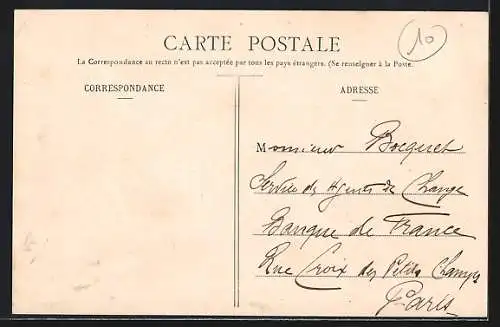 CARTE POSTALE
10
La Correspondance au recto n'est pas acceptée par tous les pays étrangers. (Se renseigner à la Poste.
CORRESPONDANCE
ADRESSE
Monsieur Bocquet
Service des Agents de Change
Banque de France
Rue Croix des Petits Champs
Paris